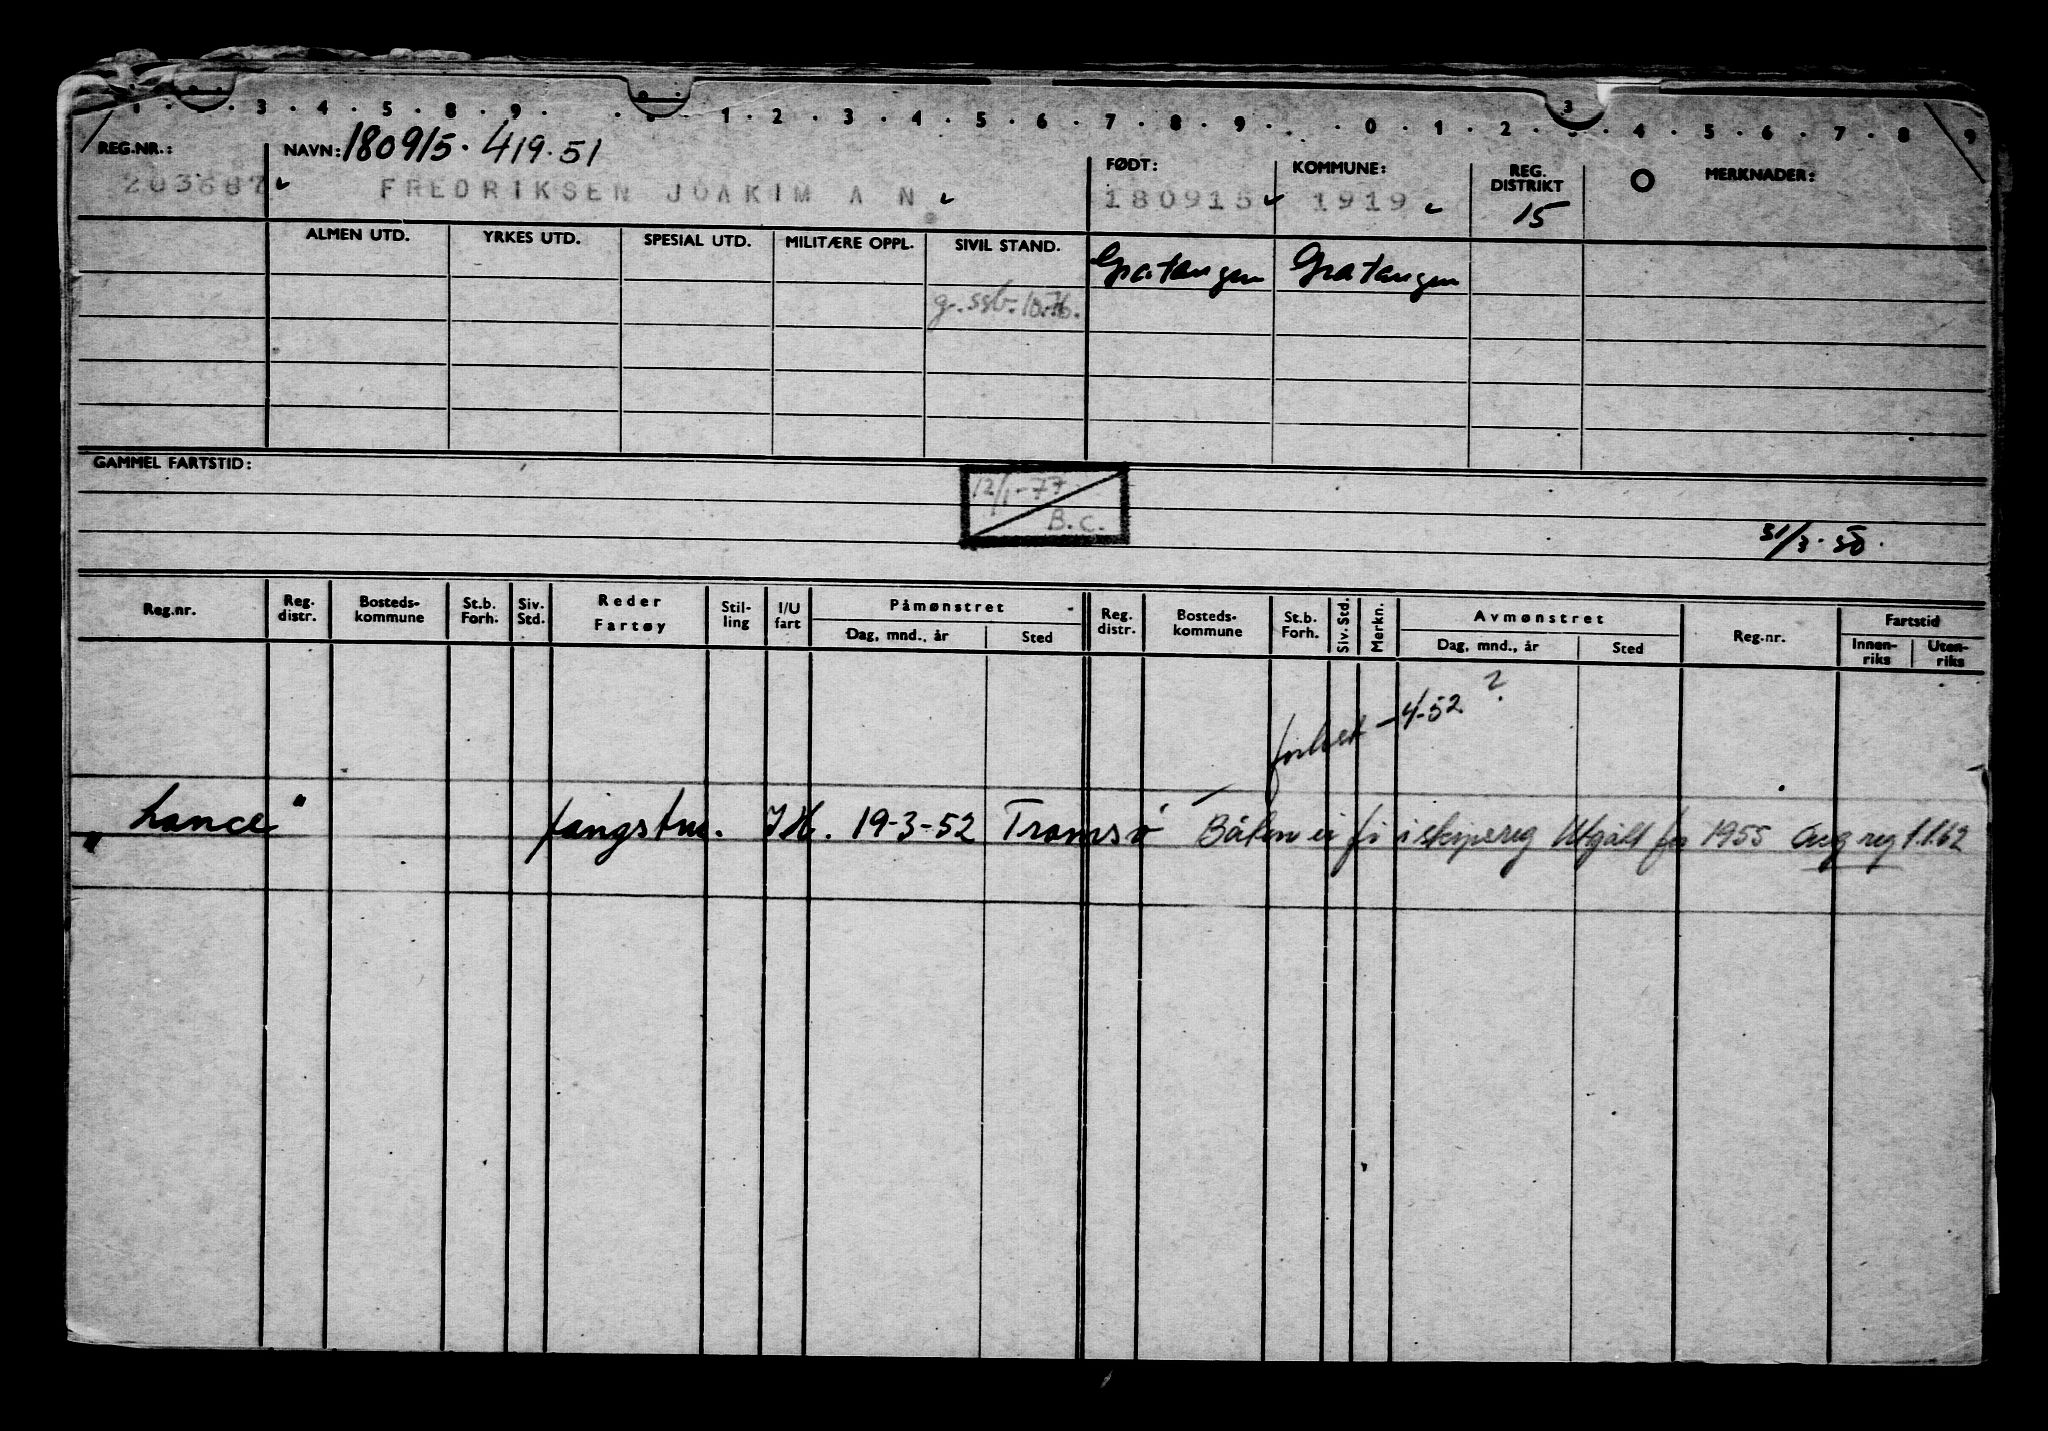 1 . . 3 . 4 . 5 . 8 . 9 . . . 1 . 2 . 3 . 4 . 5 . 6 . 7 . 8 . 9 . . 0 . 1 . 2 . 3 . 4 . 5 . 6 . 7 . 8 . 9
REG.NR.: NAVN: 180915. 419.51 FØDT: KOMMUNE: REG. DISTRIKT MERKNADER:
203687 FREDRIKSEN JOAKIM A N 180915 1919 15
ALMEN UTD. YRKES UTD. SPESIAL UTD. MILITÆRE OPPL. SIVIL STAND. Gratangen Gratangen
g. ssb. 10.76.
GAMMEL FARTSTID:
12/1-77
B.C.
31/3.50.
Reg.nr. Reg. distr. Bosteds-kommune St.b. Forh. Siv. Std. Reder Fartøy Stil-ling I/U fart Påmønstret Reg. distr. Bosteds-kommune St.b. Forh. Siv. Std. Merkn. Avmønstret Reg.nr. Fartstid
Dag, mnd., år Sted Dag, mnd., år Sted Innen-riks Uten-riks
forlist -4-52 ?
"Lance" fangstm. 19-3-52 Tromsø Båten i skipsreg Utgått fra 1955 reg 1.1.62